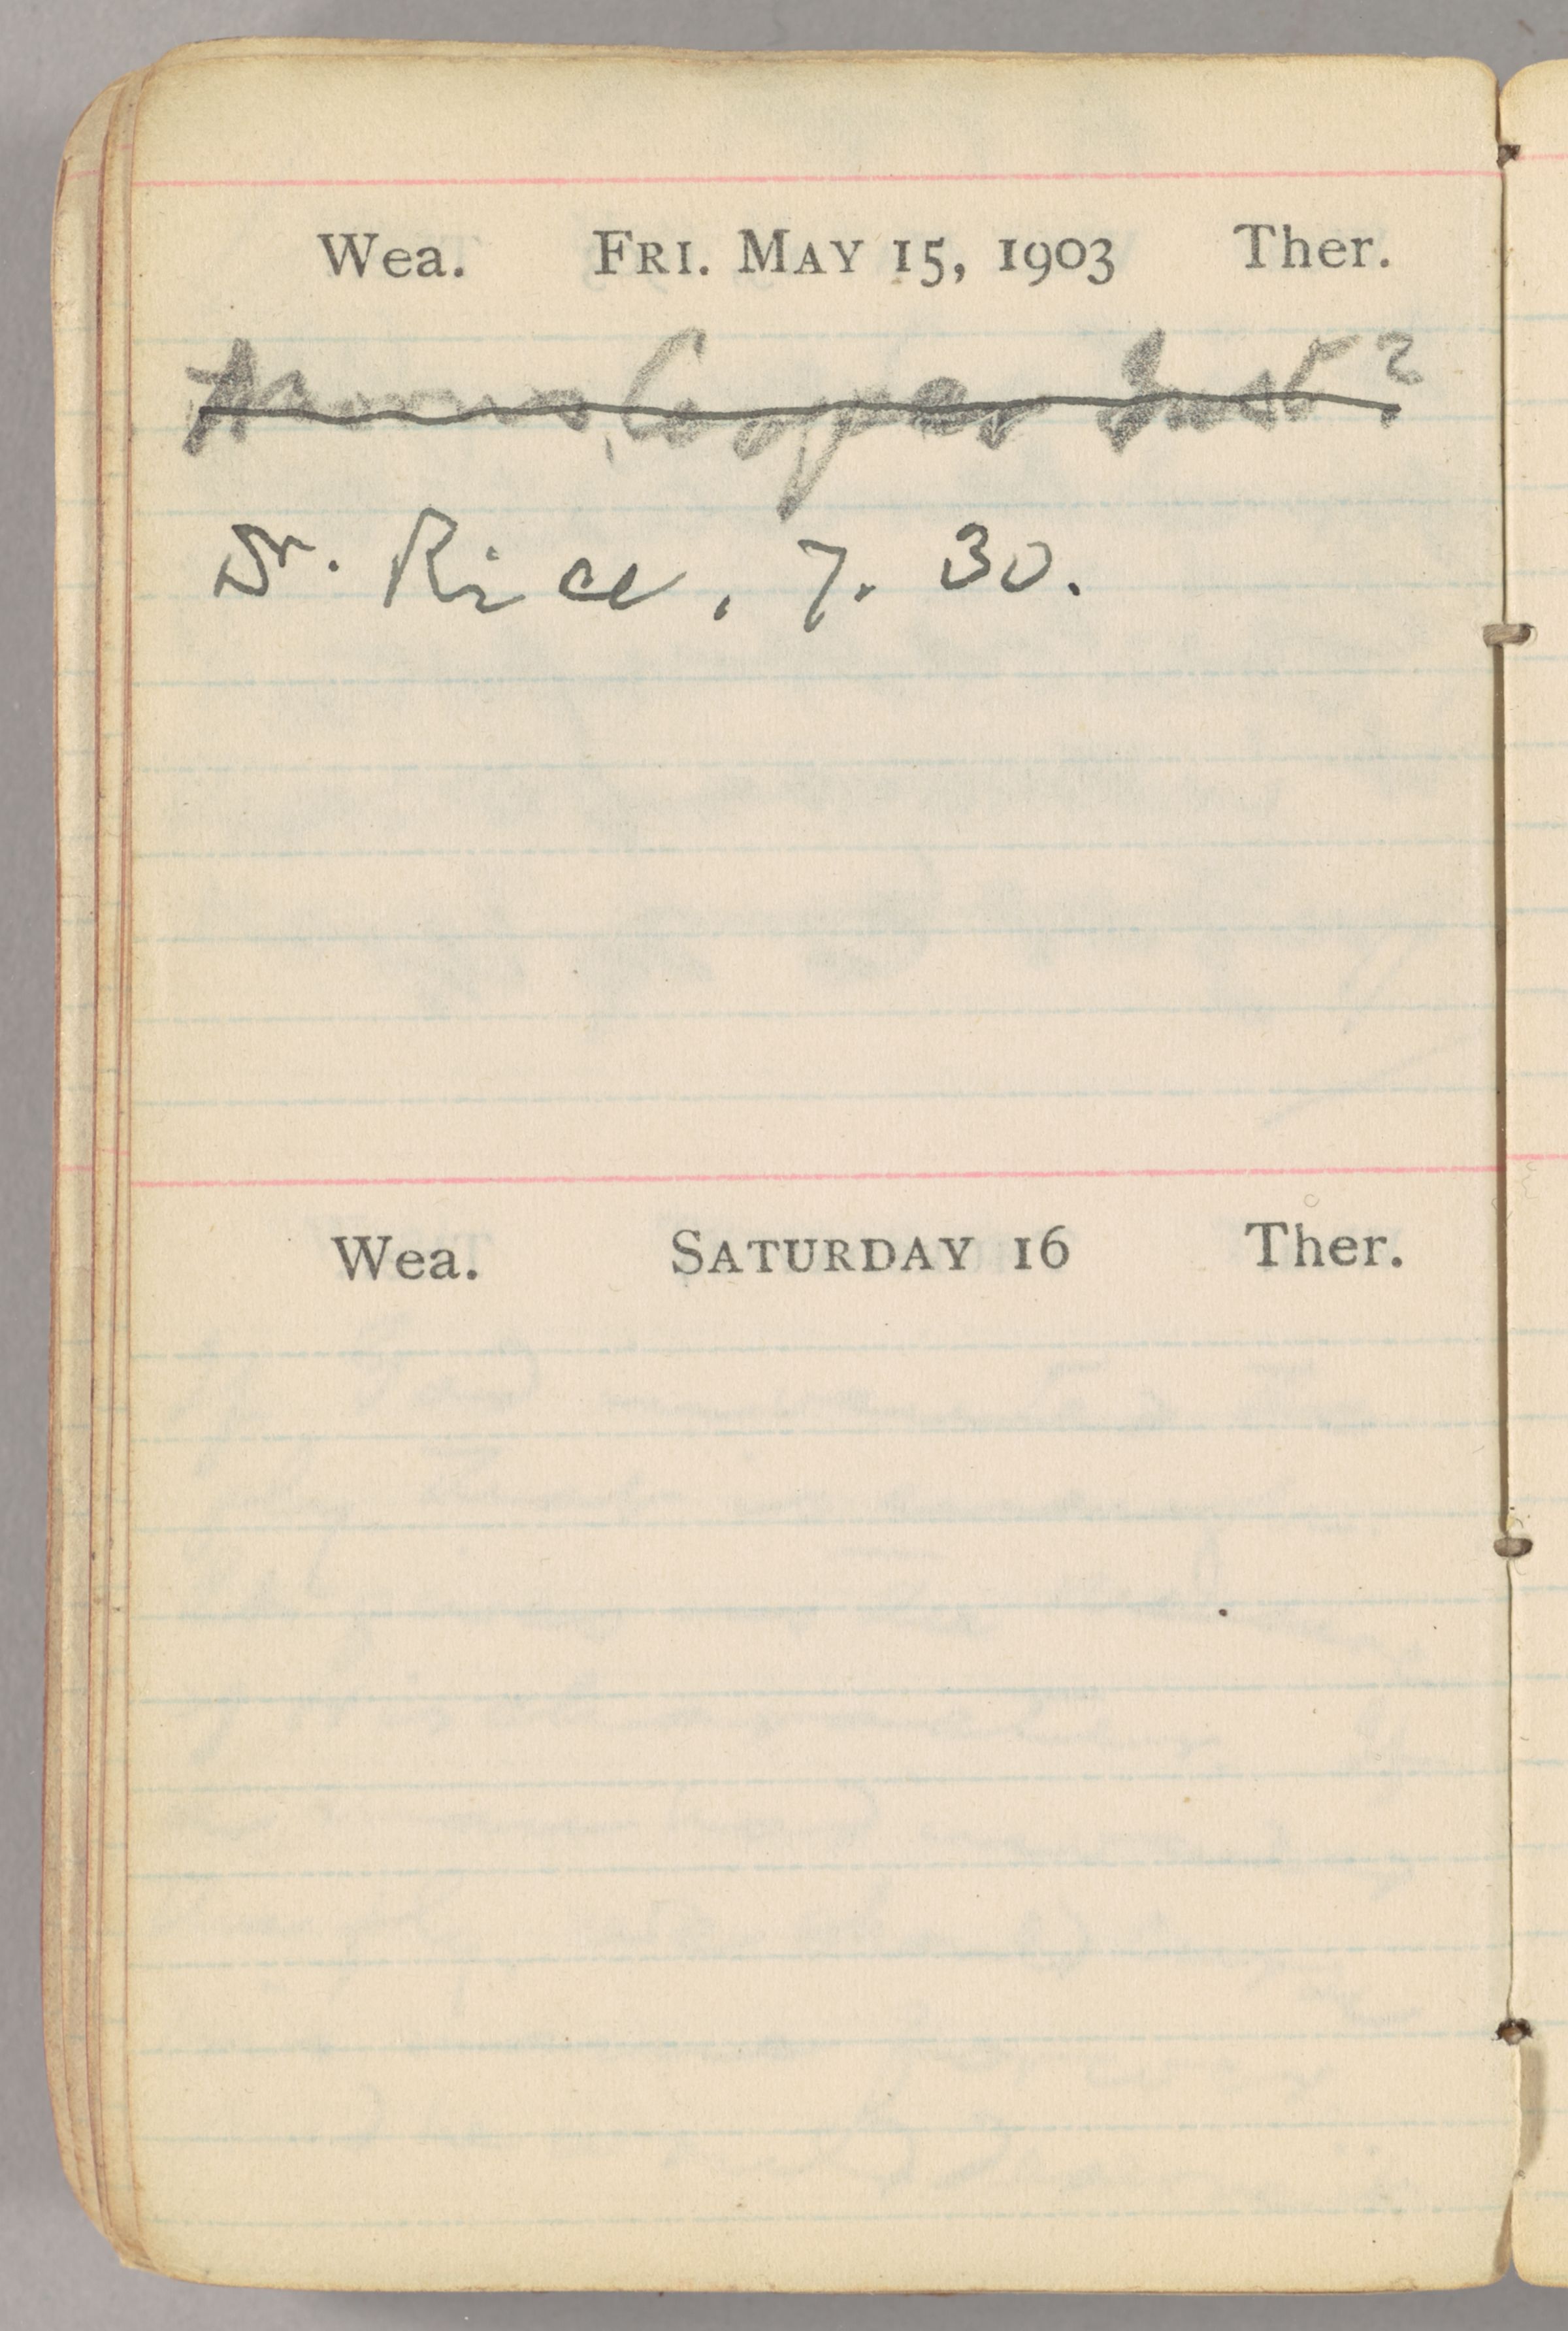 Wea. FRI. MAY 15, 1903 Ther.
Cooper Inst?
Dr. Rice, 7. 30.
Wea. SATURDAY 16 Ther.